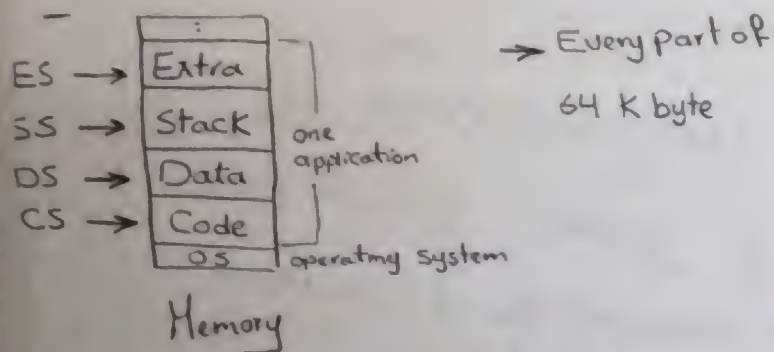 :
ES → Extra
SS → Stack
DS → Data
CS → Code
OS
one
application
operating system
Memory
→ Every part of
64 K byte